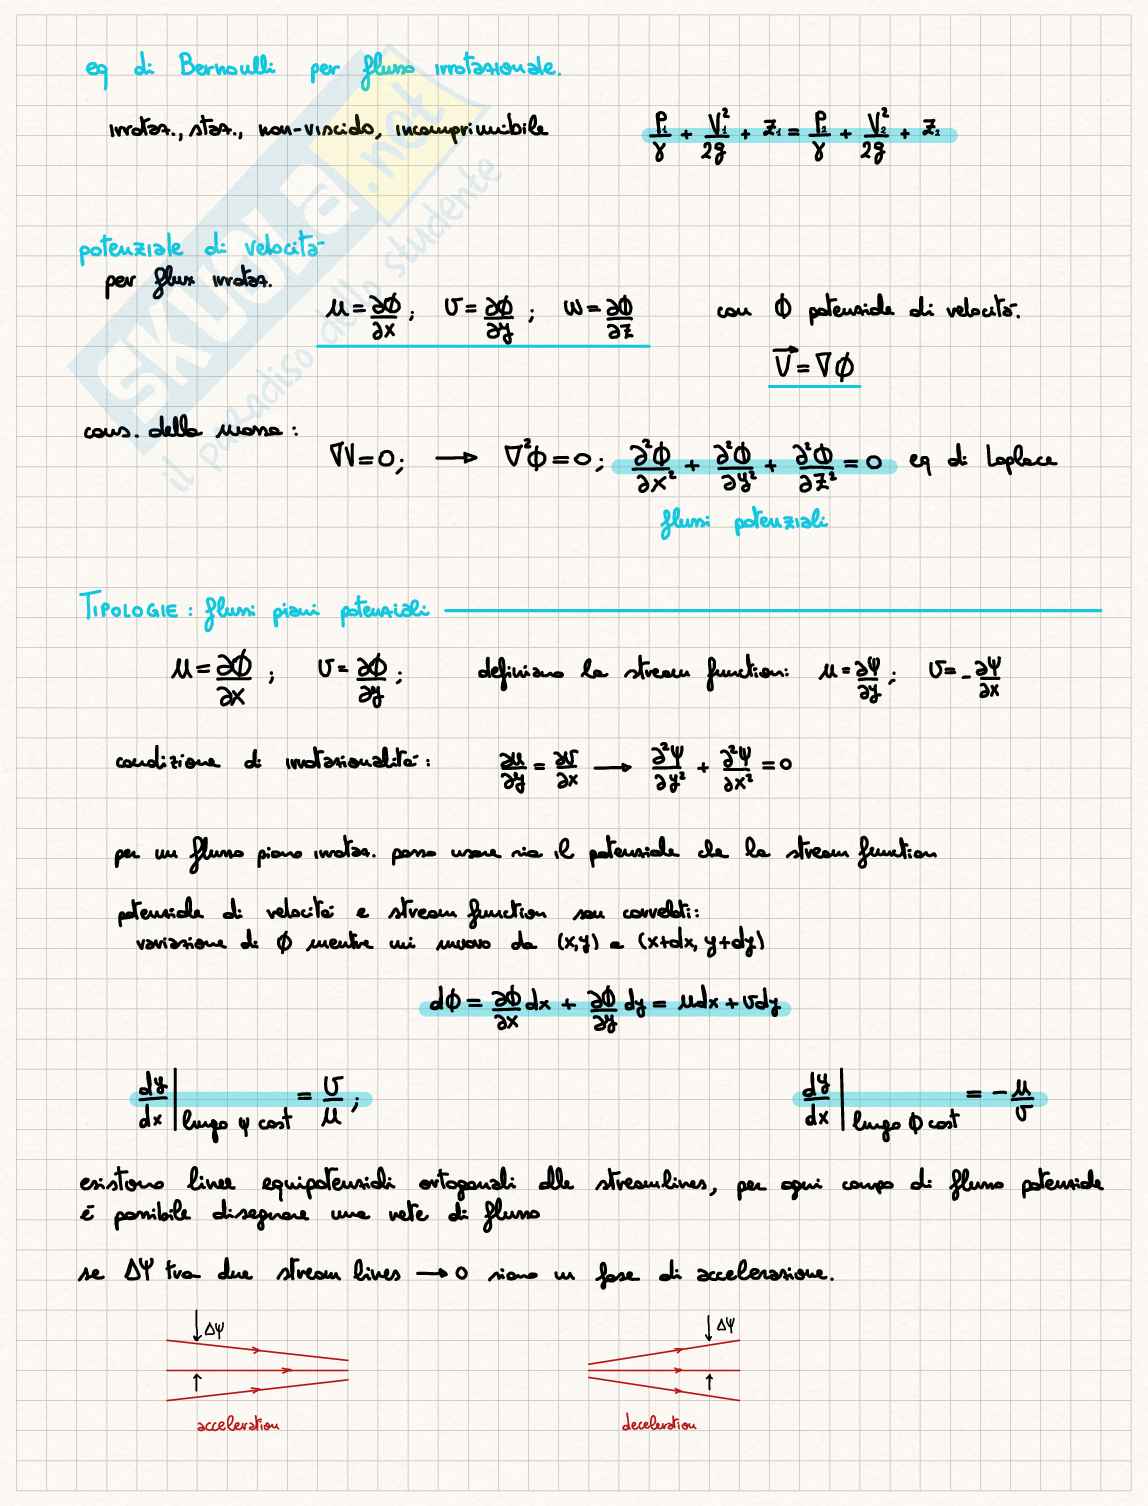 eq di Bernoulli per flusso irrotazionale.
irrotaz., staz., non-viscido, incomprimibile
P₁/γ + V₁²/2g + z₁ = P₂/γ + V₂²/2g + z₂
potenziale di velocità
per flux irrotaz.
u = ∂ϕ/∂x ; v = ∂ϕ/∂y ; w = ∂ϕ/∂z con ϕ potenziale di velocità.
V⃗ = ∇ϕ
cons. della massa :
∇V = 0 ; → ∇²ϕ = 0 ; ∂²ϕ/∂x² + ∂²ϕ/∂y² + ∂²ϕ/∂z² = 0 eq di Laplace
flussi potenziali
TIPOLOGIE : flussi piani potenziali
u = ∂ϕ/∂x ; v = ∂ϕ/∂y ; definiamo la stream function: u = ∂ψ/∂y ; v = - ∂ψ/∂x
condizione di irrotazionalità : ∂u/∂y = ∂v/∂x → ∂²ψ/∂y² + ∂²ψ/∂x² = 0
per un flusso piano irrotaz. posso usare sia il potenziale che la stream function
potenziale di velocità e stream function son correlati:
variazione di ϕ mentre mi muovo da (x,y) a (x+dx, y+dy)
dϕ = ∂ϕ/∂x dx + ∂ϕ/∂y dy = udx + vdy
dy/dx | lungo ψ cost = v/u ; dy/dx | lungo ϕ cost = - u/v
esistono linee equipotenziali ortogonali alle streamlines, per ogni campo di flusso potenziale
è possibile disegnare una rete di flusso
se Δψ tra due stream lines → 0 siamo in fase di accelerazione.
Δψ Δψ
acceleration deceleration
SKUOLA.net
il paradiso dello studente